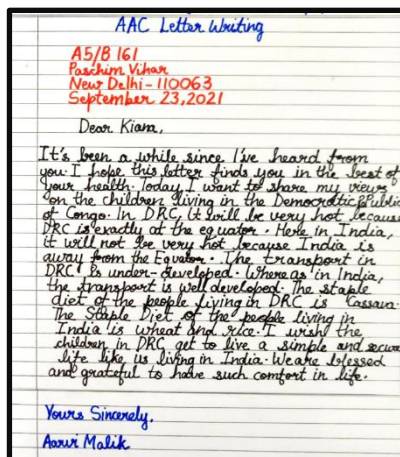 AAC Letter Writing
A5/B 161
Paschim Vihar
New Delhi - 110063
September 23, 2021
Dear Kiara,
It's been a while since I've heard from
you. I hope this letter finds you in the best of
your health. Today I want to share my views
on the children living in the Democratic Public
of Congo. In DRC, it will be very hot because
DRC is exactly at the equator. Here in India,
it will not be very hot because India is
away from the Equator. The transport in
DRC is under-developed. Whereas in India,
the transport is well developed. The staple
diet of the people living in DRC is Cassava.
The Staple Diet of the people living in
India is wheat and rice. I wish the
children in DRC get to live a simple and secure
life like us living in India. We are blessed
and grateful to have such comfort in life.
Yours Sincerely,
Aarvi Malik